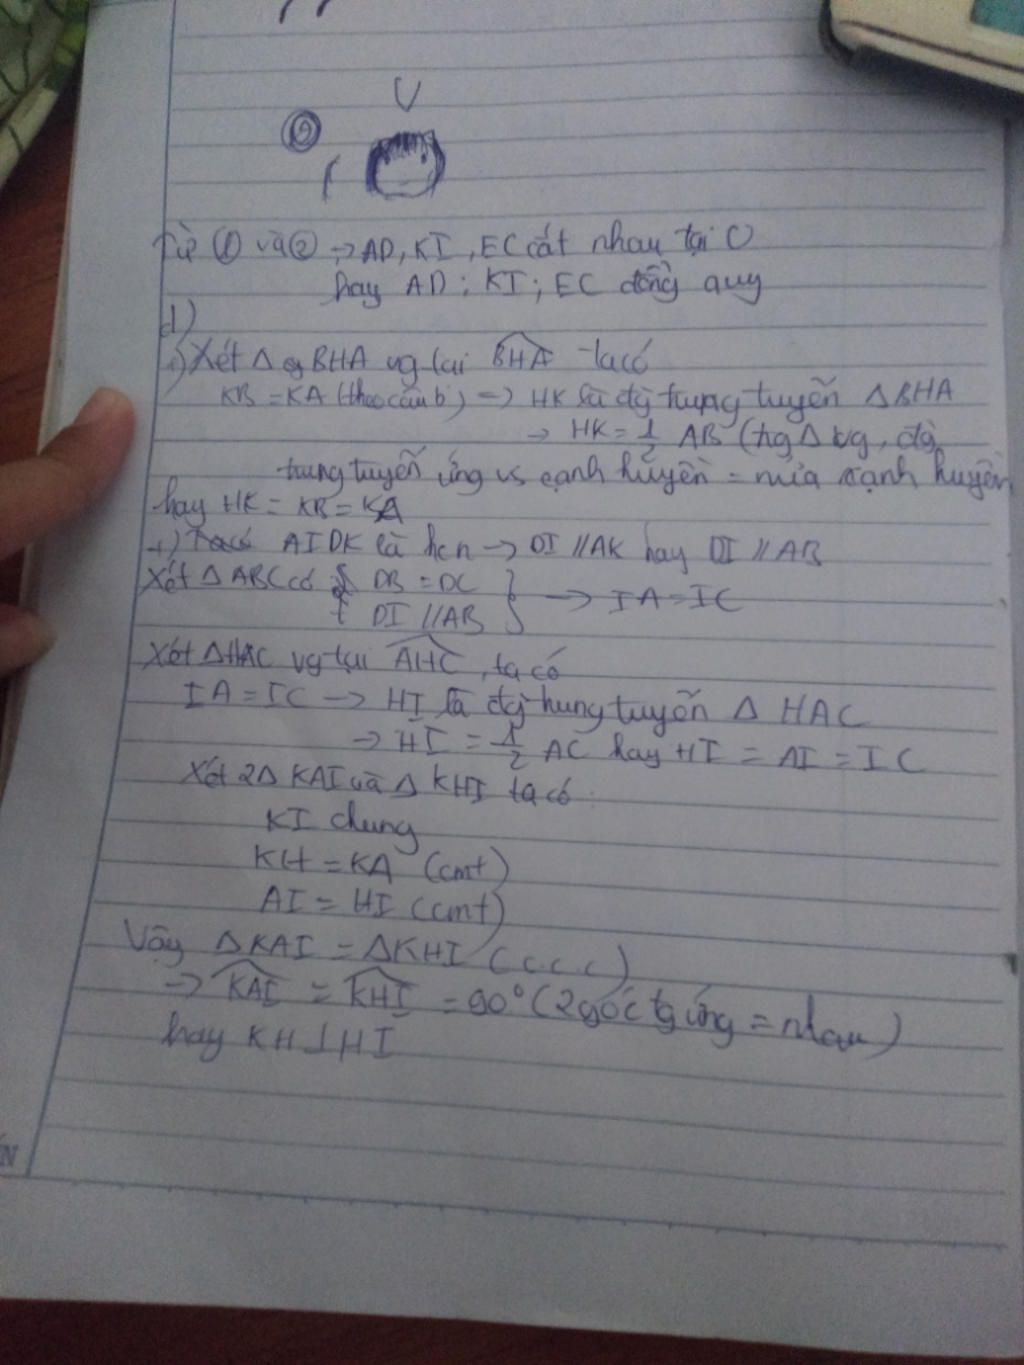 ②
Từ ① và ② → AD, KI, EC cắt nhau tại O
hay AD; KI; EC đồng quy
d)
+) Xét Δ BHA vg tại BHA ta có
KB = KA (theo câu b) → HK là đg trung tuyến Δ BHA
→ HK = 1/2 AB (trg Δ vg, đg
trung tuyến ứng vs cạnh huyền = nửa cạnh huyền
hay HK = KB = KA
+) Ta có AIDK là hcn → DI // AK hay DI // AB
Xét Δ ABC có { DB = DC } → IA = IC
DI // AB
Xét ΔHAC vg tại AHC, ta có
IA = IC → HI là đg trung tuyến Δ HAC
→ HI = 1/2 AC hay HI = AI = IC
Xét 2Δ KAI và Δ KHI ta có
KI chung
KH = KA (cmt)
AI = HI (cmt)
Vậy ΔKAI = ΔKHI (c.c.c)
→ KAI = KHI = 90° (2 góc tg ứng = nhau)
hay KH ⊥ HI